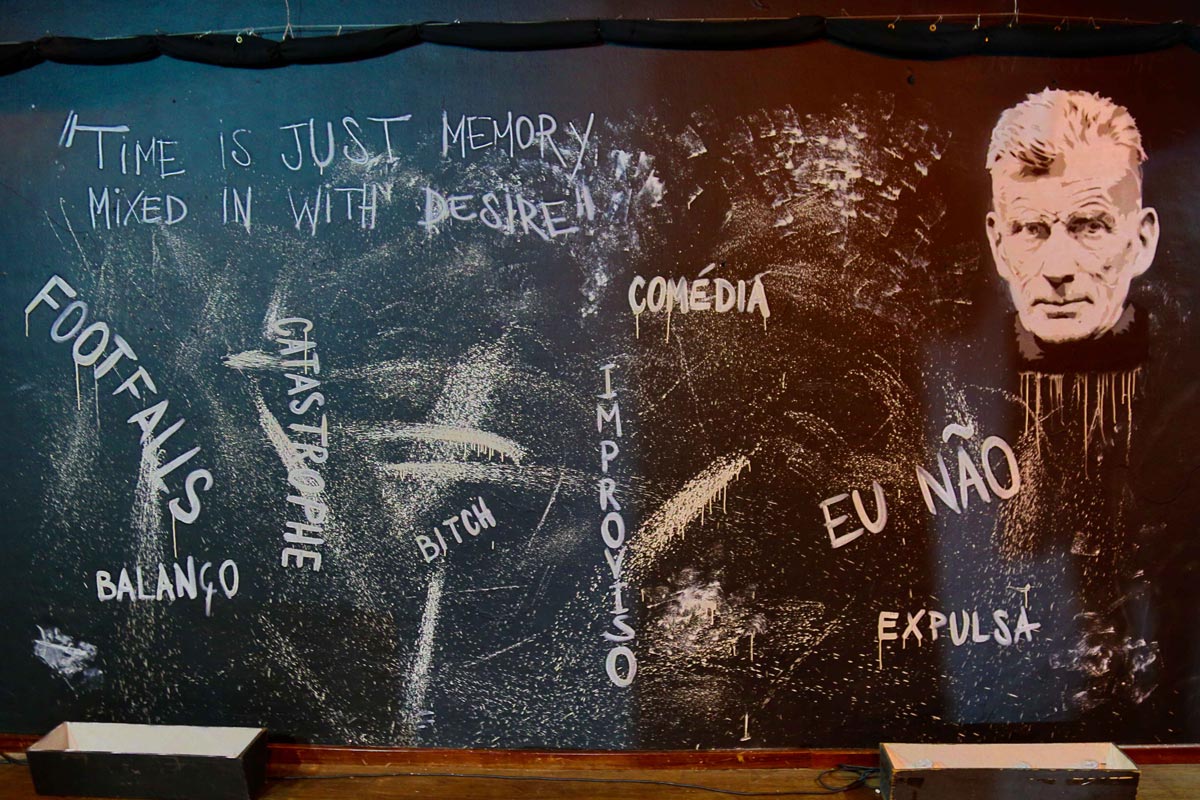 "TIME IS JUST MEMORY
MIXED IN WITH DESIRE"
COMÉDIA
FOOTFALLS
CATASTROPHE
IMPROVISO
EU NÃO
BITCH
BALANÇO
EXPULSA